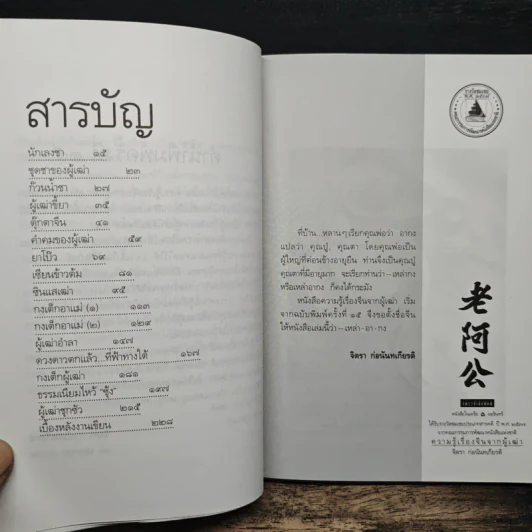 สารบัญ
นักเลงชา ๑๕
ชุดชาของผู้เฒ่า ๒๓
ก๊วนน้ำชา ๒๗
ผู้เฒ่าขี้ยา ๓๕
ตุ๊กตาจีน ๔๑
คำคมของผู้เฒ่า ๕๙
ยาโป๊ว ๖๙
เซียนข้าวต้ม ๘๑
ซินแสเฒ่า ๙๕
กงเต็กอาแม่ (๑) ๑๑๓
กงเต็กอาแม่ (๒) ๑๒๙
ผู้เฒ่าอำลา ๑๔๗
ดวงดาวตกแล้ว...ที่ฟ้าทางใต้ ๑๖๗
กงเต็กผู้เฒ่า ๑๘๑
ธรรมเนียมไหว้ "ซุ้ง" ๑๙๗
ผู้เฒ่าซุกซัว ๒๑๕
เบื้องหลังงานเขียน ๒๒๘
ที่บ้าน...หลานๆ เรียกคุณพ่อว่า อากง
แปลว่า คุณปู่, คุณตา โดยคุณพ่อเป็น
ผู้ใหญ่ที่ค่อนข้างอายุยืน ท่านจึงเป็นคุณปู่
คุณตาที่มีอายุมาก จะเรียกท่านว่า—เหล่ากง
หรือเหล่าอากง ก็คงได้กระมัง
หนังสือความรู้เรื่องจีนจากผู้เฒ่า เริ่ม
จากฉบับพิมพ์ครั้งที่ ๑๕ จึงขอตั้งชื่อจีน
ให้หนังสือเล่มนี้ว่า—เหล่า-อา-กง
จิตรา ก่อนันทเกียรติ
老阿公
ได้รับรางวัลชมเชยประเภทสารคดี ปี พ.ศ. ๒๕๓๗
จากคณะกรรมการพัฒนาหนังสือแห่งชาติ
ความรู้เรื่องจีนจากผู้เฒ่า
จิตรา ก่อนันทเกียรติ